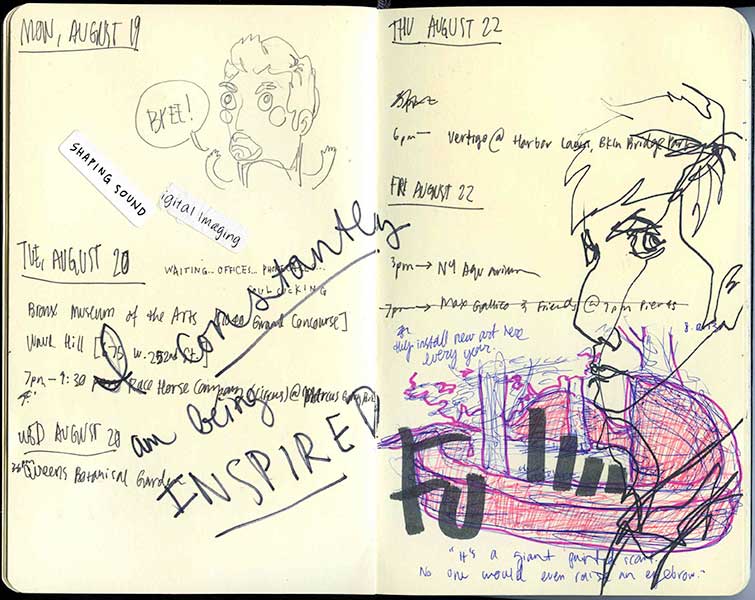 MON, AUGUST 19
BREE!
SHAPING SOUND
igital imaging
TUE, AUGUST 20
WAITING.. OFFICES..
Bronx Museum of the Arts Grand Concourse]
Wave Hill W. 252nd St.]
7pm-9:30 Race Horse Company (circus) @ Marcus
WED AUGUST 20
Queens Botanical Garden
I constantly
am being
INSPIRED
THU AUGUST 22
6pm — Vertigo @ Harbor Lawn, Bkln Bridge Park
FRI AUGUST 22
3pm → NY Aquarium
7pm → Max & Friends @ 7pm
they install new art here
every year.
FU
"It's a giant painted
No one would even raise an eyebrow."